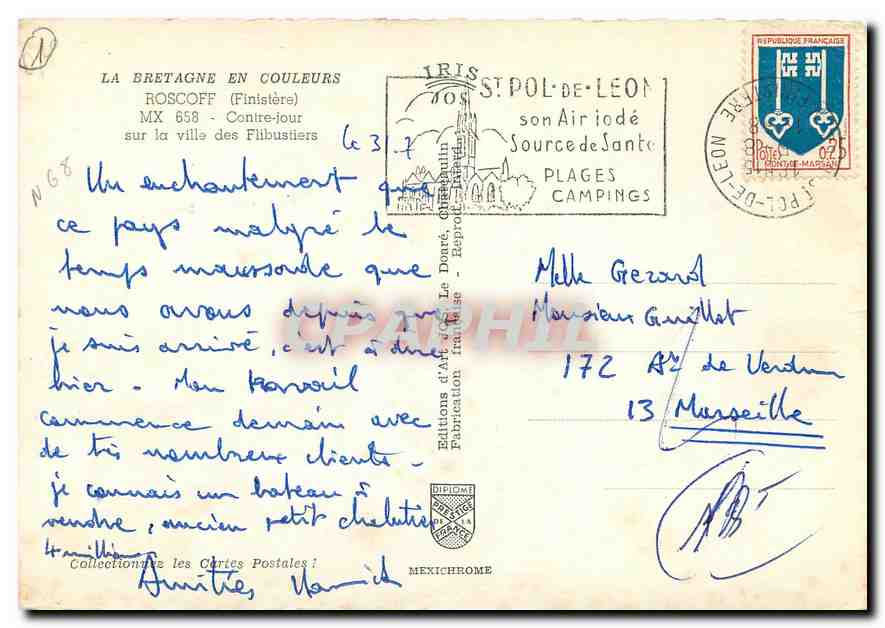 1
LA BRETAGNE EN COULEURS
ROSCOFF (Finistère)
MX 658 - Contre-jour
sur la ville des Flibustiers
N68
le 31.7
Un enchantement que
ce pays malgré le
temps maussade que
nous avons depuis que
je suis arrivé, c'est à dire
hier - Mon travail
commence demain avec
de très nombreux clients -
je connais un bateau à
vendre, ancien petit chalutier
4 millions
Amitiés Yannick
Collectionnez les Cartes Postales !
IRIS
JOS
Editions d'Art JOS Le Doaré, Châteaulin
Fabrication française - Reprod. Interd.
DIPLOME
PRESTIGE
DE LA
FRANCE
MEXICHROME
ST POL-DE-LEON
son Air iodé
Source de Santé
PLAGES
CAMPINGS
REPUBLIQUE FRANÇAISE
POSTES
0,25
MONT-DE-MARSAN
ST POL-DE-LEON
FINISTERE
Melle Gerard
Monsieur Guillot
172 Av. de Verdun
13 Marseille
CPAPHIL